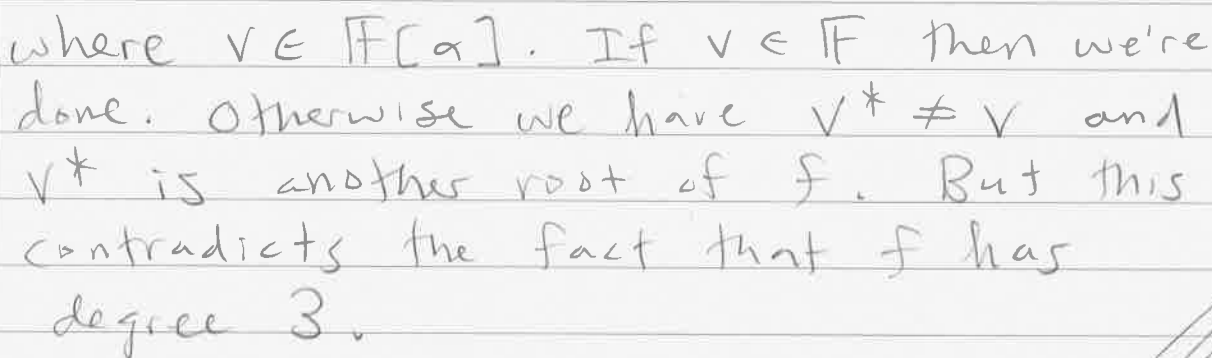 where v ∈ 𝔽[α]. If v ∈ 𝔽 then we're
done. Otherwise we have v* ≠ v and
v* is another root of f. But this
contradicts the fact that f has
degree 3.